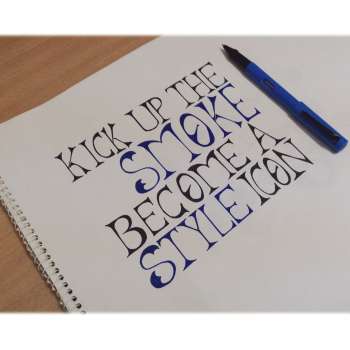 KICK UP THE
SMOKE
BECOME A
STYLE ICON